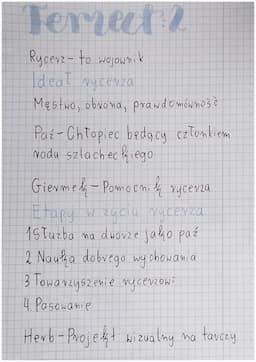 Temat: 2
Rycerz - to wojownik
Ideał rycerza
Męstwo, obrona, prawdomówność
Paź - Chłopiec będący członkiem
rodu szlacheckiego
Giermek - Pomocnik rycerza
Etapy w życia rycerza
1 Służba na dworze jako paź
2 Nauka dobrego wychowania
3 Towarzyszenie rycerzowi
4. Pasowanie
Herb - Projekt wizualny na tarczy